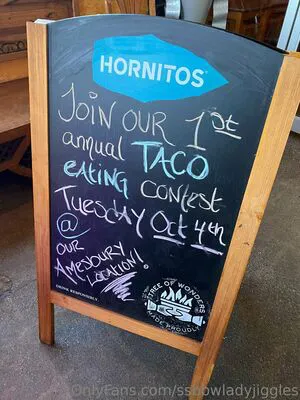 HORNITOS
Join our 1st
annual TACO
eating contest
Tuesday Oct 4th
@
our
Amesbury
location!
DRINK RESPONSIBLY.
TREE OF WONDERS
MADE PROUDLY
OnlyFans.com/ssbbwladyjiggles